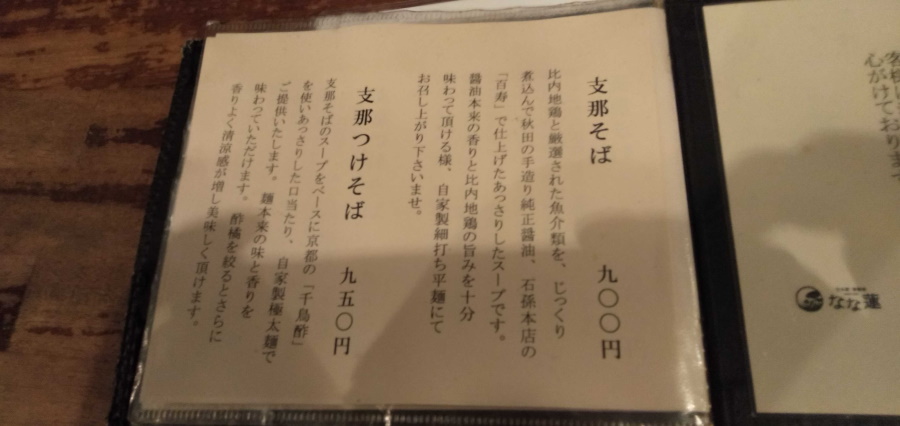 心がけております
支那そば 九〇〇円
比内地鶏と厳選された魚介類を、じっくり
煮込んで秋田の手造り純正醤油、石孫本店の
「百寿」で仕上げたあっさりしたスープです。
醤油本来の香りと比内地鶏の旨みを十分
味わって頂ける様、自家製細打ち平麺にて
お召し上がり下さいませ。
支那つけそば 九五〇円
支那そばのスープをベースに京都の「千鳥酢」
を使いあっさりした口当たり、自家製極太麺で
ご提供いたします。麺本来の味と香りを
味わっていただけます。酢橘を絞るとさらに
香りよく清涼感が増し美味しく頂けます。
なな蓮